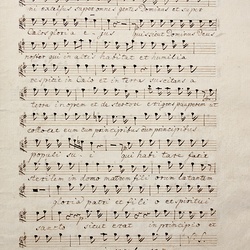 excelsus super omnes gentes Dominus et super
Cælos gloria ejus quis sicut Dominus Deus
noster qui in altis habitat et humilia
respicit in Cælo et in terra suscitans a
Terra inopem et de stercore erigens pauperem ut
collocet eum cum principibus cum principibus
populi sui qui habitare facit
sterilem in domo matrem filiorum lætantem
gloria patri et filio et spiritui
sancto sicut erat in principio et